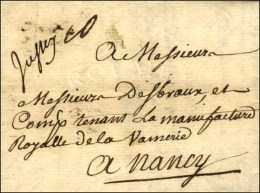 A Messieurs
Messieurs Desbraux, et
Comp tenant la manufacture
Royalle de la Vannerie
a nancy